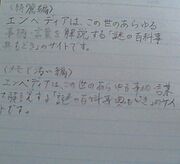 (特寛編)
エンペディアは、この世のあらゆる
事柄・言葉を解説する「謎の百科事
典もどき」のサイトです。
(メモで汚い編)
エンペディアは、この世のあらゆる事柄・言葉
を解説する「謎の百科事典もどき」のサイ
トです。